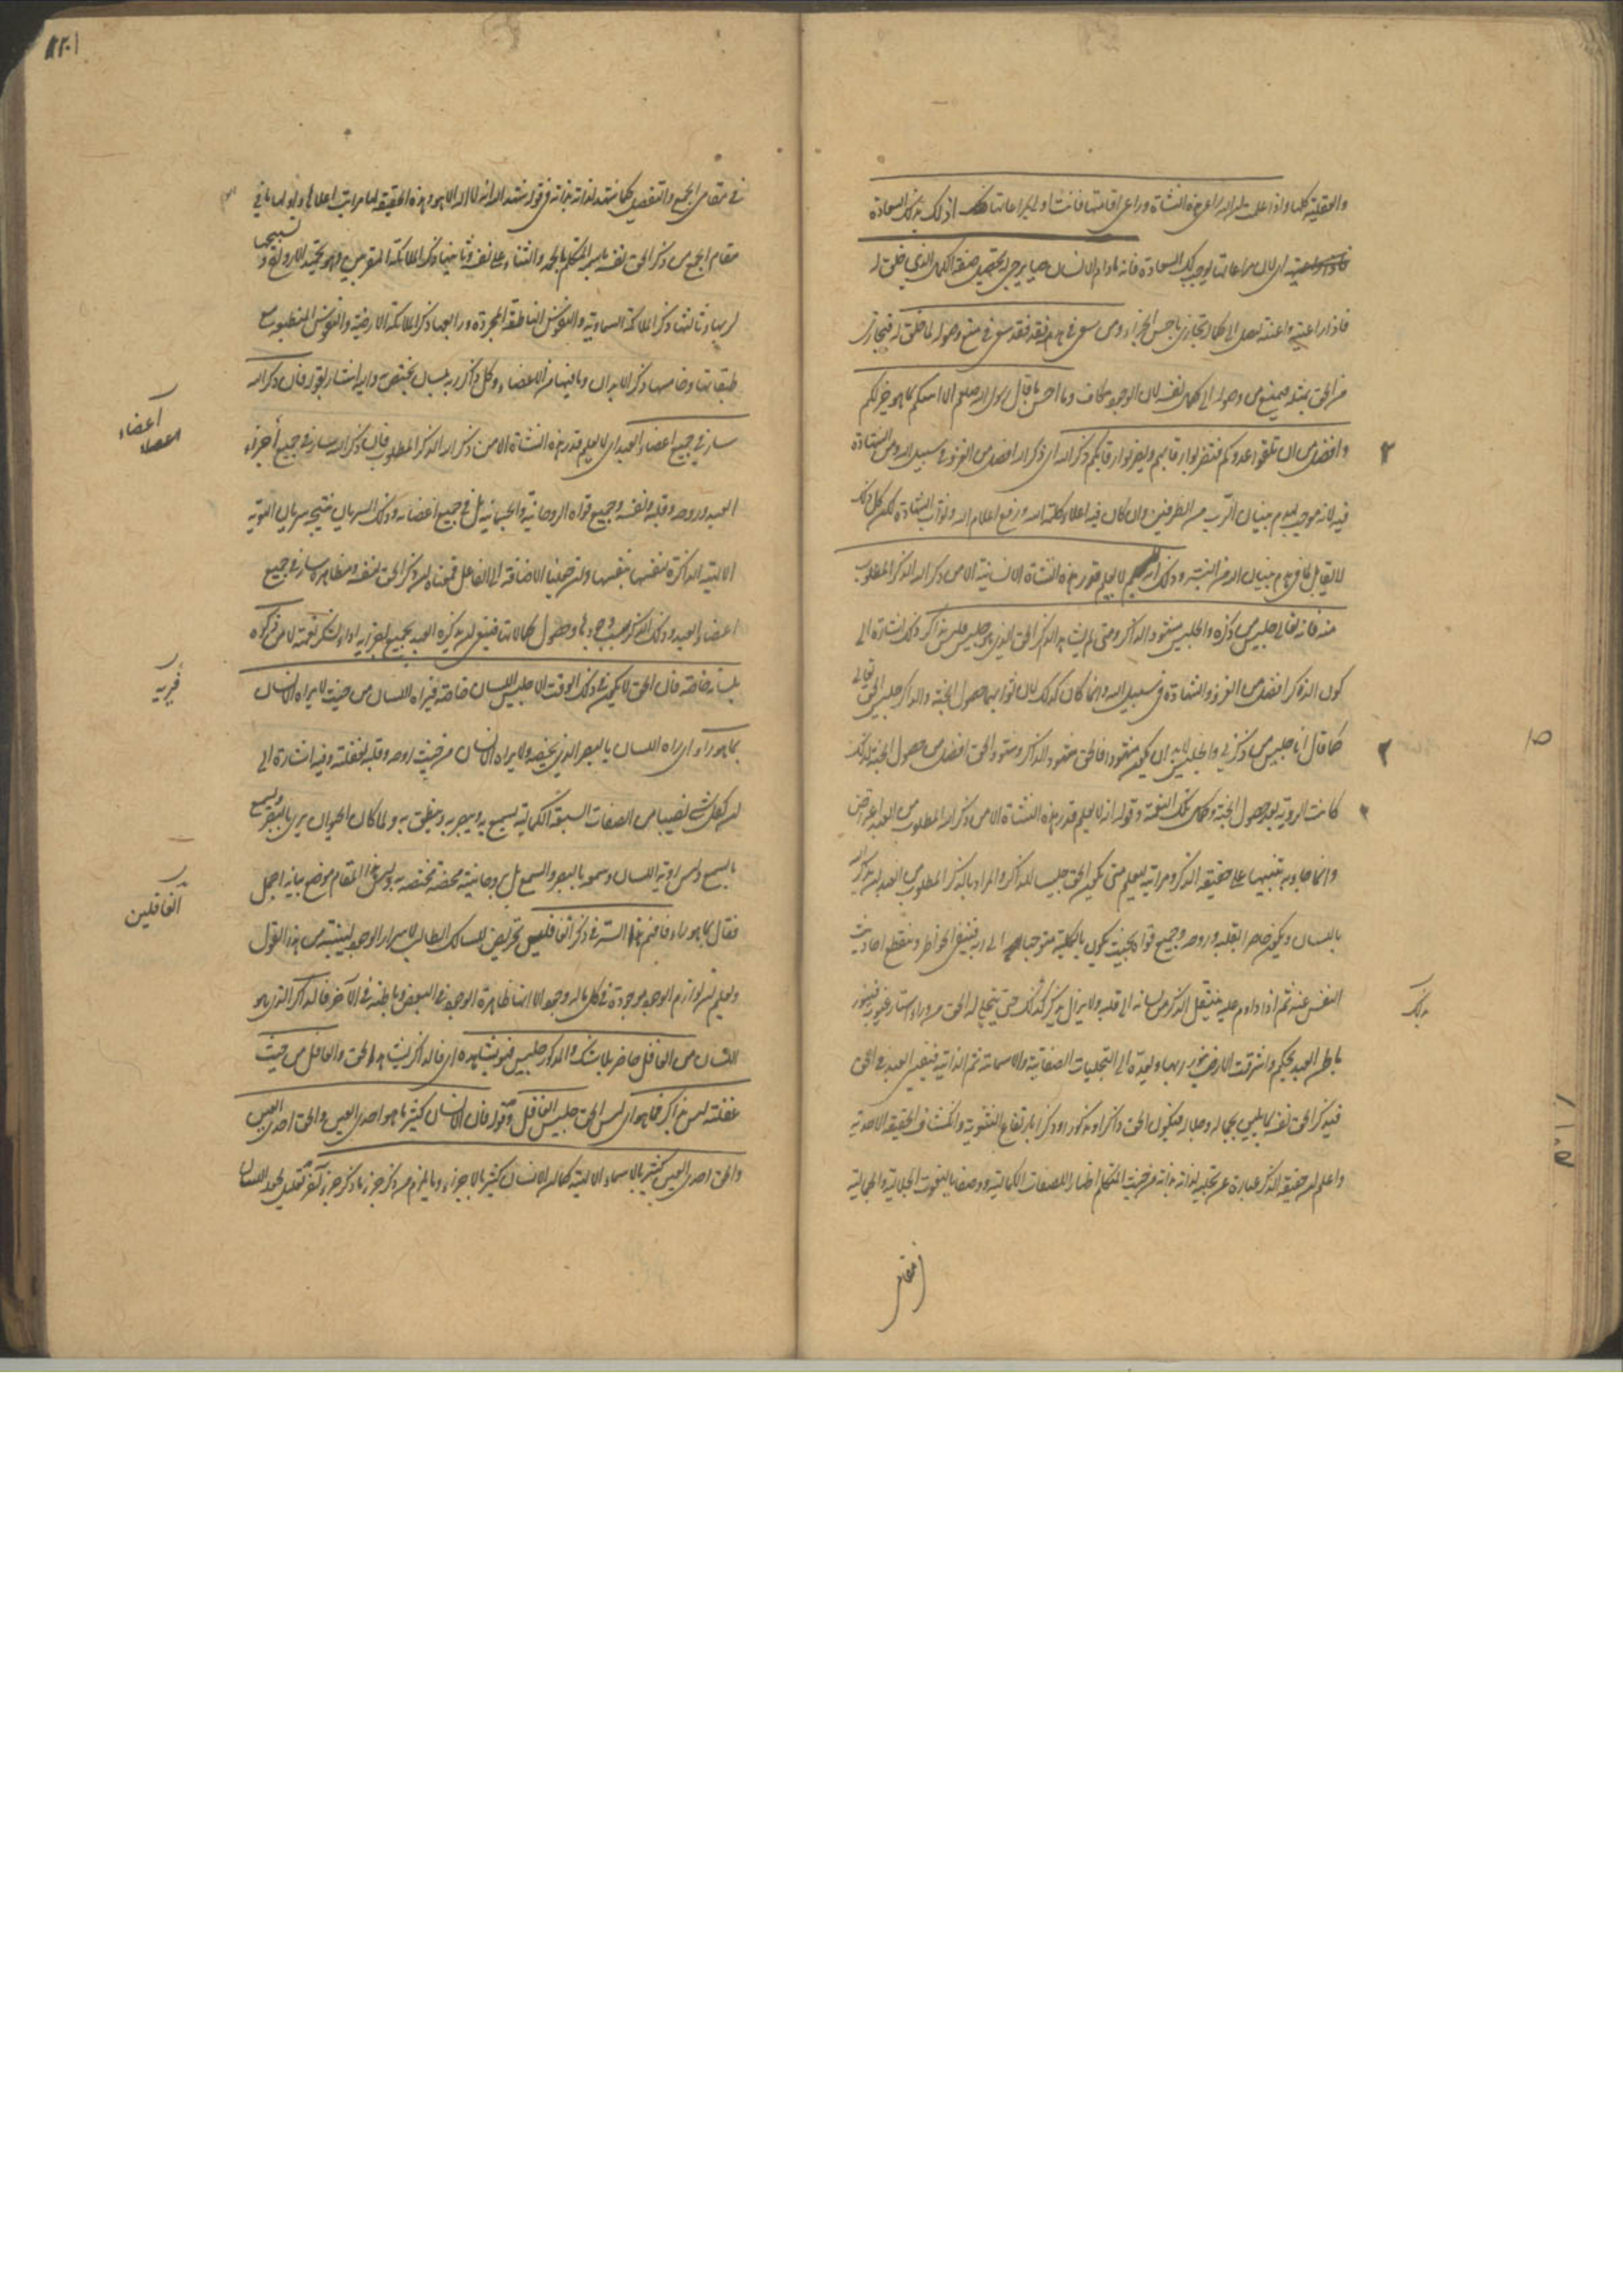 والعقلية كلها واذا علمت ان الله راعى هذه النشأة وراعى اقامتها فانت اولى بمراعاتها اذ لك بذلك السعادة
اى لان مراعاتها يوجب لك السعادة فانه ما دام الانسان حيا يرجى له تحصيل صفة الكمال الذى خلق له
فاذا راعيته واعنته ليصل الى كماله تجازى باحسن الجزاء ومن سعى فى هدمه فقد سعى فى منع وصوله لما خلق له فيجازى
من الحق بمثله فيمنع من وصوله الى كمال نفسه لان الوجود مكاف وما احسن ما قال رسول الله صلعم الا انبئكم بما هو خير لكم
وافضل من ان تلقوا عدوكم فتضربوا رقابهم ويضربوا رقابكم ذكر الله اى ذكر الله افضل من الغزو فى سبيل الله ومن الشهادة
فيه لانه موجب لهدم بنيان الرب من الطرفين وان كان فيه اعلاء كلمة الله ورفع اعلام الله وثواب الشهادة لكن كل ذلك
لا يقابل لما فى هدم بنيان الله من وذلك انه لا يعلم قدر هذه النشأة الانسانية الا من ذكر الله الذكر المطلوب
منه فانه تعالى جليس من ذكره والجليس مشهود الذاكر ومتى لم يشاهد الذاكر الحق الذى هو جليسه فليس بذاكر ذلك اشارة الى
كون الذكر افضل من الغزو والشهادة فى سبيل الله وانما كان كذلك لان ثوابهما حصول الجنة والذاكر جليس الحق تعالى
كما قال انا جليس من ذكرنى والجليس لا بد ان يكون مشهودا فالحق مشهود الذاكر وشهود الحق افضل من حصول الجنة لذلك
كانت الروية بعد حصول الجنة وكمال تلك النعمة وقوله انه لا يعلم قدر هذه النشأة الا من ذكر الله المطلوب من العبد
وانما جاء به تنبيها على حقيقة الذكر ومراتبه ليعلم متى يكون الحق جليسا للذاكر والمراد بالذكر المطلوب من العبد ان يذكر الله
باللسان ويكون حاضرا بقلبه وروحه وجميع قواه بحيث يكون بالكلية متوجها الى ربه فينتفى الخواطر وينقطع احاديث
النفس عنه ثم اذا داوم عليه ينتقل الذكر من لسانه الى قلبه ولا يزال يذكر كذلك حتى يتجلى له الحق من وراء استار غيوبه فينور
بذلك
باطن العبد بحكم واشرقت الارض بنور ربها ويعده الى التجليات الصفاتية والاسمائية ثم الذاتية فيفنى العبد فى الحق
فيذكر الحق نفسه بما يليق بجماله وجلاله فيكون الحق ذاكرا ومذكورا وذكرا بارتفاع الثنوية وانكشاف الحقيقة الاحدية
واعلم ان حقيقة الذكر عبارة عن تجليه لذاته بذاته من حيث المتكلم اظهارا للصفات الكمالية ووصفا بالنعوت الجلالية والجمالية
فى مقامى الجمع والتفصيل كما شهد لذاته بذاته فى قوله شهد الله انه لا اله الا هو وهذه الحقيقة لها مراتب اعلاها واولها ما فى
مقام الجمع من ذكر الحق نفسه باسم المتكلم بالحمد والثناء على نفسه وثانيها ذكر الملائكة المقربين وهو تحميد الارواح وتسبيحها
لربها وثالثها ذكر الملائكة السماوية والنفوس الناطقة المجردة ورابعها ذكر الملائكة الارضية والنفوس المنطبعة مع
طبقاتها وخامسها ذكر الابدان وما فيها من الاعضاء وكل ذاكر لربه بلسان يختص به واليه اشار بقوله فان ذكر الله
سار فى جميع اعضاء العبد اى لا يعلم قدر هذه النشأة الا من ذكر الله الذكر المطلوب فان ذكر الله سار فى جميع اجزاء
أعضاء
العبد وروحه وقلبه ونفسه وجميع قواه الروحانية والجسمانية بل فى جميع اعضائه وذلك السريان نتيجة سريان الهوية
الالهية الذاكرة لنفسها بنفسها وان جعلنا الاضافة الى الفاعل فمعناه ان ذكر الحق لنفسه ومظاهره سار فى جميع
اعضاء العبد وذلك الذكر سبب وجودها وحصول كمالاتها فينبغى ان يذكره العبد بجميع اجزائه اداء لشكر نعمه لا من ذكره
بلسانه خاصة فان الحق لا يكون فى ذلك الوقت الا جليس اللسان خاصة فيراه اللسان من حيث لا يراه الانسان
بما هو راء اى يراه اللسان بالبصر الذى يخصه ولا يراه الانسان من حيث روحه وقلبه لغفلته وفيه اشارة الى
ان لكل شئ نصيبا من الصفات السبعة الكمالية يسمع به ويبصر به وينطق به ولما كان الحيوان يرى بالبصر ويسمع
بالسمع وليس روية اللسان وسمعه بالبصر والسمع بل بروحانيته محضة مختصة به وليس هذا المقام موضع بيانه اجمل
فقال بما هو راء فافهم هذا السر فى ذكر الغافلين تحريض للسالك الطالب لاسرار الوجود لينتبه من هذا القول
الغافلين
ويعلم ان لوازم الوجود موجودة فى كل ما له وجود الا انها ظاهرة الوجود فى البعض وباطنة فى الآخر فالذاكر الذى هو
اللسان من الغافل حاضر بلا شك والمذكور جليسه فهو يشاهده اى فالذاكر يشاهد الحق والغافل من حيث
غفلته ليس بذاكر فما هو اى ليس الحق جليس الغافل وقوله فان الانسان كثير ما هو احدى العين والحق احدى العين
والحق احدى العين كثير بالاسماء الالهية كما ان الانسان كثير بالاجزاء وما يلزم من ذكر جزء ما ذكر جزء آخر